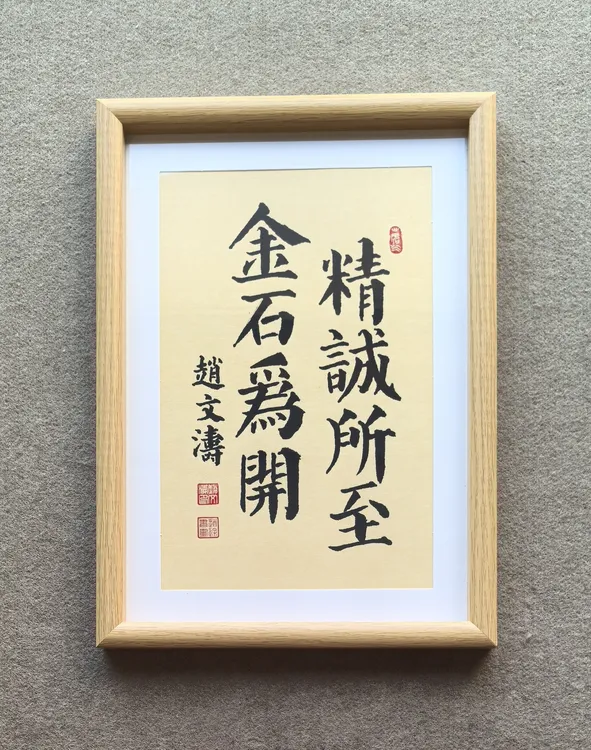 精誠所至
金石爲開
趙文濤